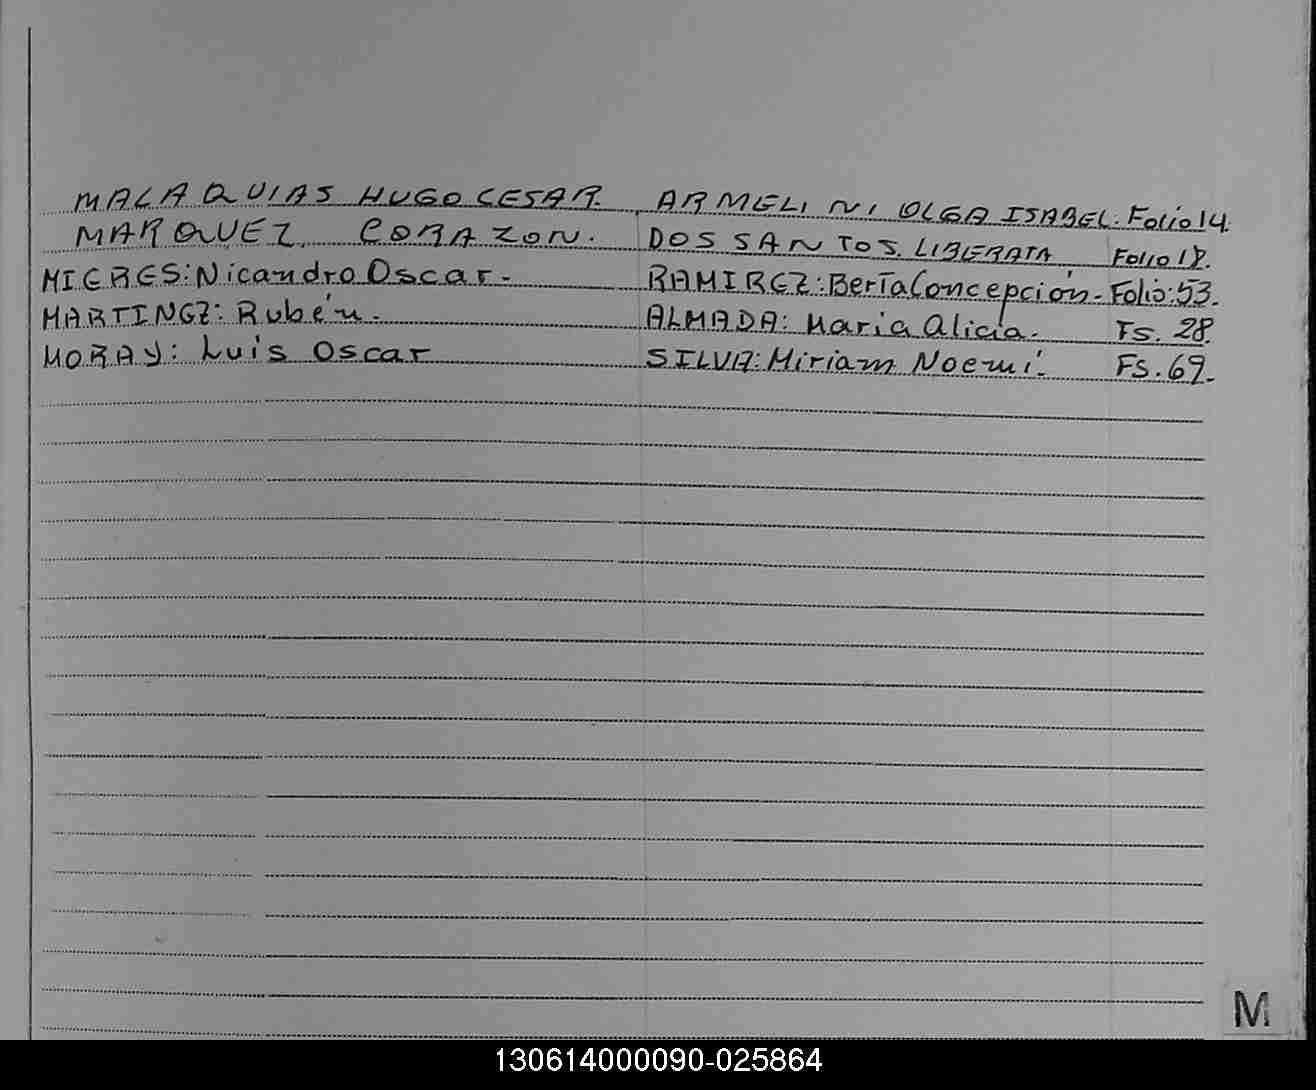 MALAQUIAS HUGO CESAR. ARMELINI OLGA ISABEL. Folio 14.
MARQUEZ CORAZON. DOS SANTOS. LIBERATA Folio 18.
MIERES: Nicandro Oscar.- RAMIREZ: Berta Concepción.- Folio: 53.
MARTINEZ: Rubén.- ALMADA: Maria Alicia.- Fs. 28.
MORAY: Luis Oscar SILVA: Miriam Noemí.- Fs. 69.-
M
130614000090-025864